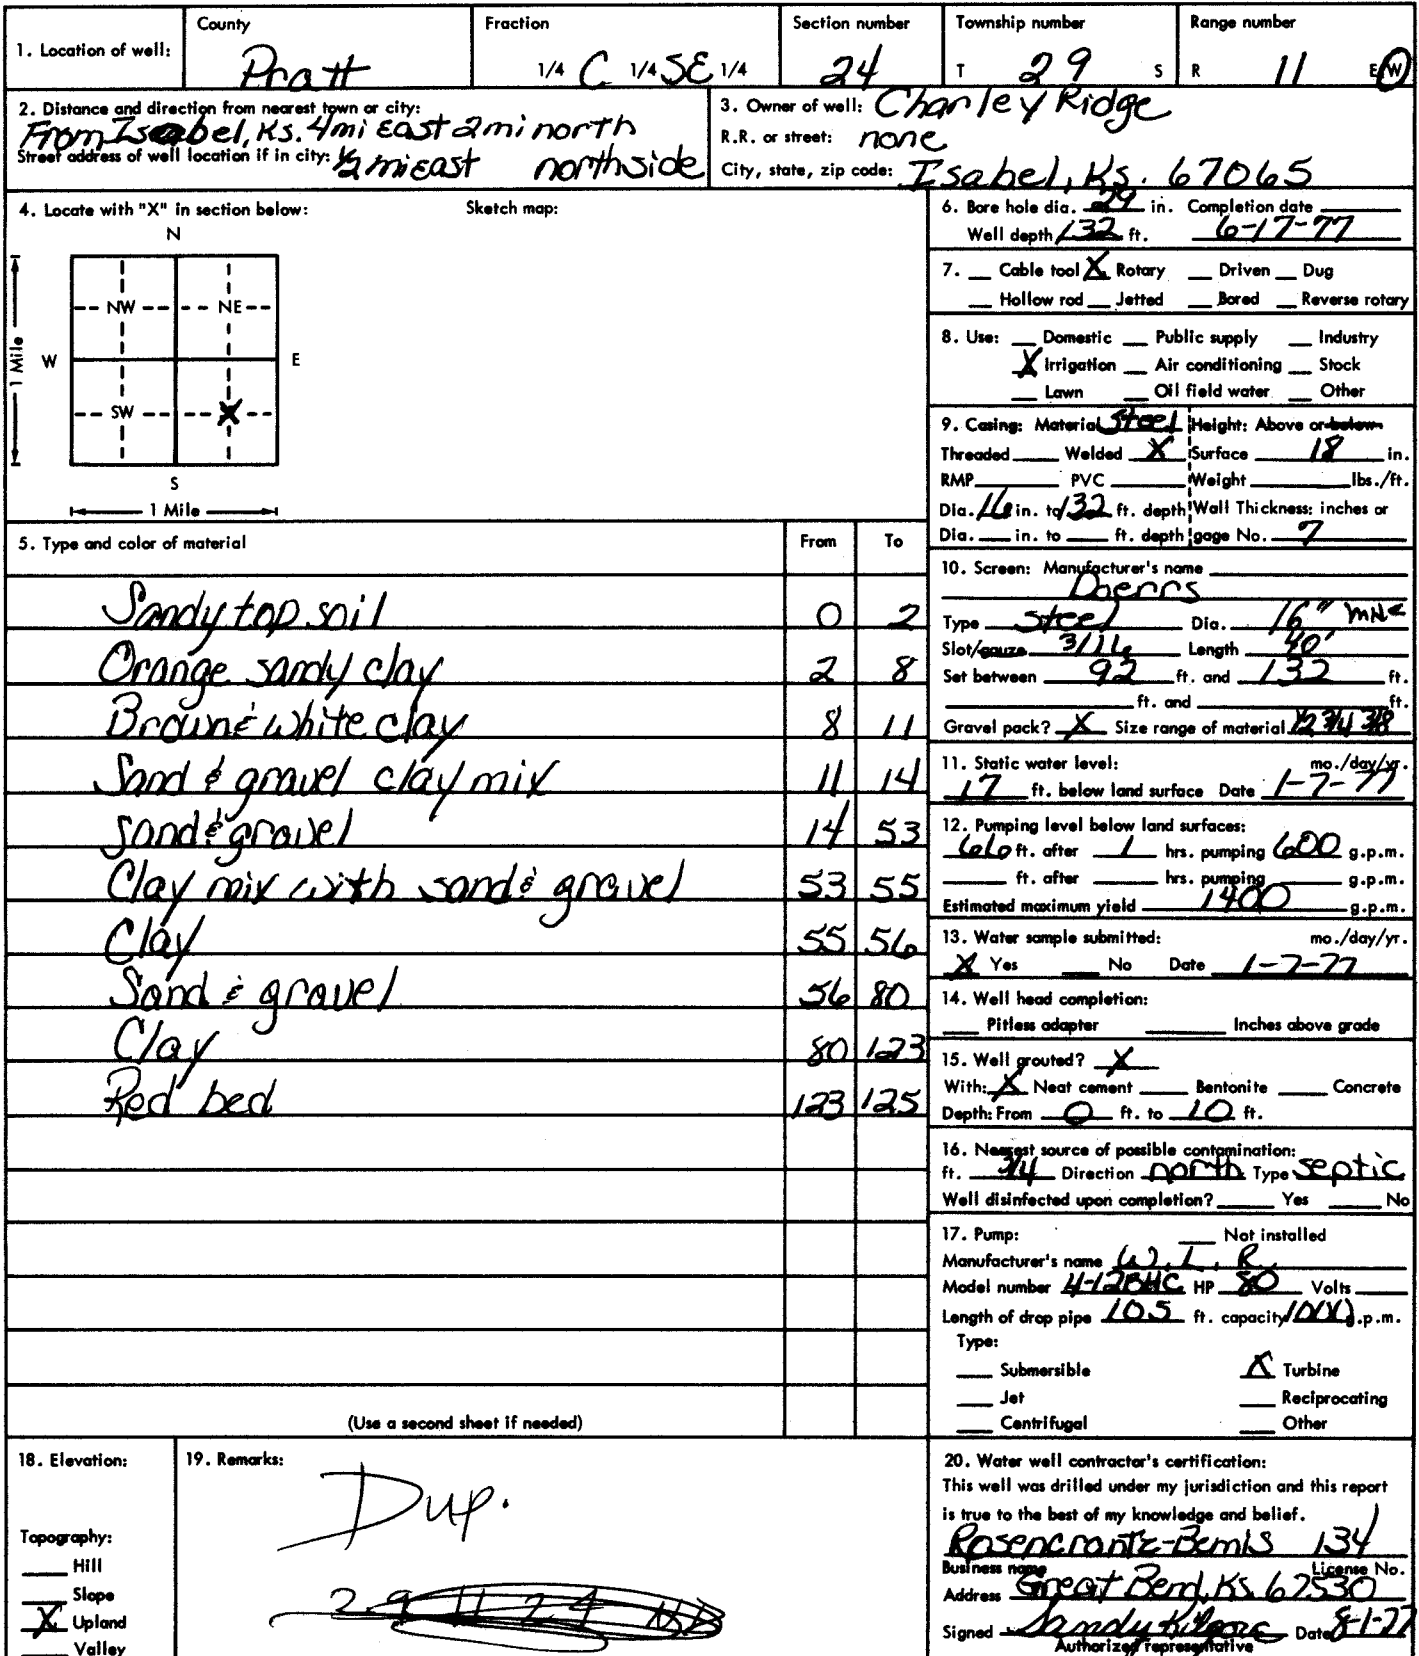 1. Location of well: County Pratt Fraction 1/4 C 1/4 SE 1/4 Section number 24 Township number T 29 S Range number R 11 E W
2. Distance and direction from nearest town or city:
From Isabel, Ks. 4 mi East 2 mi north
Street address of well location if in city: 1/2 mi east northside
3. Owner of well: Charley Ridge
R.R. or street: none
City, state, zip code: Isabel, Ks. 67065
4. Locate with "X" in section below: Sketch map:
N
NW NE
W E
1 Mile
SW X
S
1 Mile
5. Type and color of material From To
Sandy top soil 0 2
Orange sandy clay 2 8
Brown & white clay 8 11
Sand & gravel clay mix 11 14
Sand & gravel 14 53
Clay mix with sand & gravel 53 55
Clay 55 56
Sand & gravel 56 80
Clay 80 123
Red bed 123 125
(Use a second sheet if needed)
6. Bore hole dia. 29 in. Completion date
Well depth 132 ft. 6-17-77
7. Cable tool X Rotary Driven Dug
Hollow rod Jetted Bored Reverse rotary
8. Use: Domestic Public supply Industry
X Irrigation Air conditioning Stock
Lawn Oil field water Other
9. Casing: Material Steel Height: Above or below
Threaded Welded X Surface 18 in.
RMP PVC Weight lbs./ft.
Dia. 16 in. to 132 ft. depth Wall Thickness: inches or
Dia. in. to ft. depth gage No. 7
10. Screen: Manufacturer's name
Doerrs
Type steel Dia. 16"
Slot/gauze 3/16 Length 40'
Set between 92 ft. and 132 ft.
ft. and ft.
Gravel pack? X Size range of material 1/2 3/4 3/8
11. Static water level: mo./day/yr.
17 ft. below land surface Date 1-7-77
12. Pumping level below land surfaces:
66 ft. after 1 hrs. pumping 600 g.p.m.
ft. after hrs. pumping g.p.m.
Estimated maximum yield 1400 g.p.m.
13. Water sample submitted: mo./day/yr.
X Yes No Date 1-7-77
14. Well head completion:
Pitless adapter Inches above grade
15. Well grouted? X
With: X Neat cement Bentonite Concrete
Depth: From 0 ft. to 10 ft.
16. Nearest source of possible contamination:
ft. 3/4 Direction north Type septic
Well disinfected upon completion? Yes No
17. Pump: Not installed
Manufacturer's name W. L. R.
Model number 4-12BHC HP 80 Volts
Length of drop pipe 105 ft. capacity 1000 g.p.m.
Type:
Submersible X Turbine
Jet Reciprocating
Centrifugal Other
18. Elevation:
Topography:
Hill
Slope
X Upland
Valley
19. Remarks:
Dup.
29 11 24
20. Water well contractor's certification:
This well was drilled under my jurisdiction and this report
is true to the best of my knowledge and belief.
Rosencrantz-Bemis 134
Business name License No.
Address Great Bend, Ks. 67530
Signed Sandy Kilgore Date 8-1-77
Authorized representative